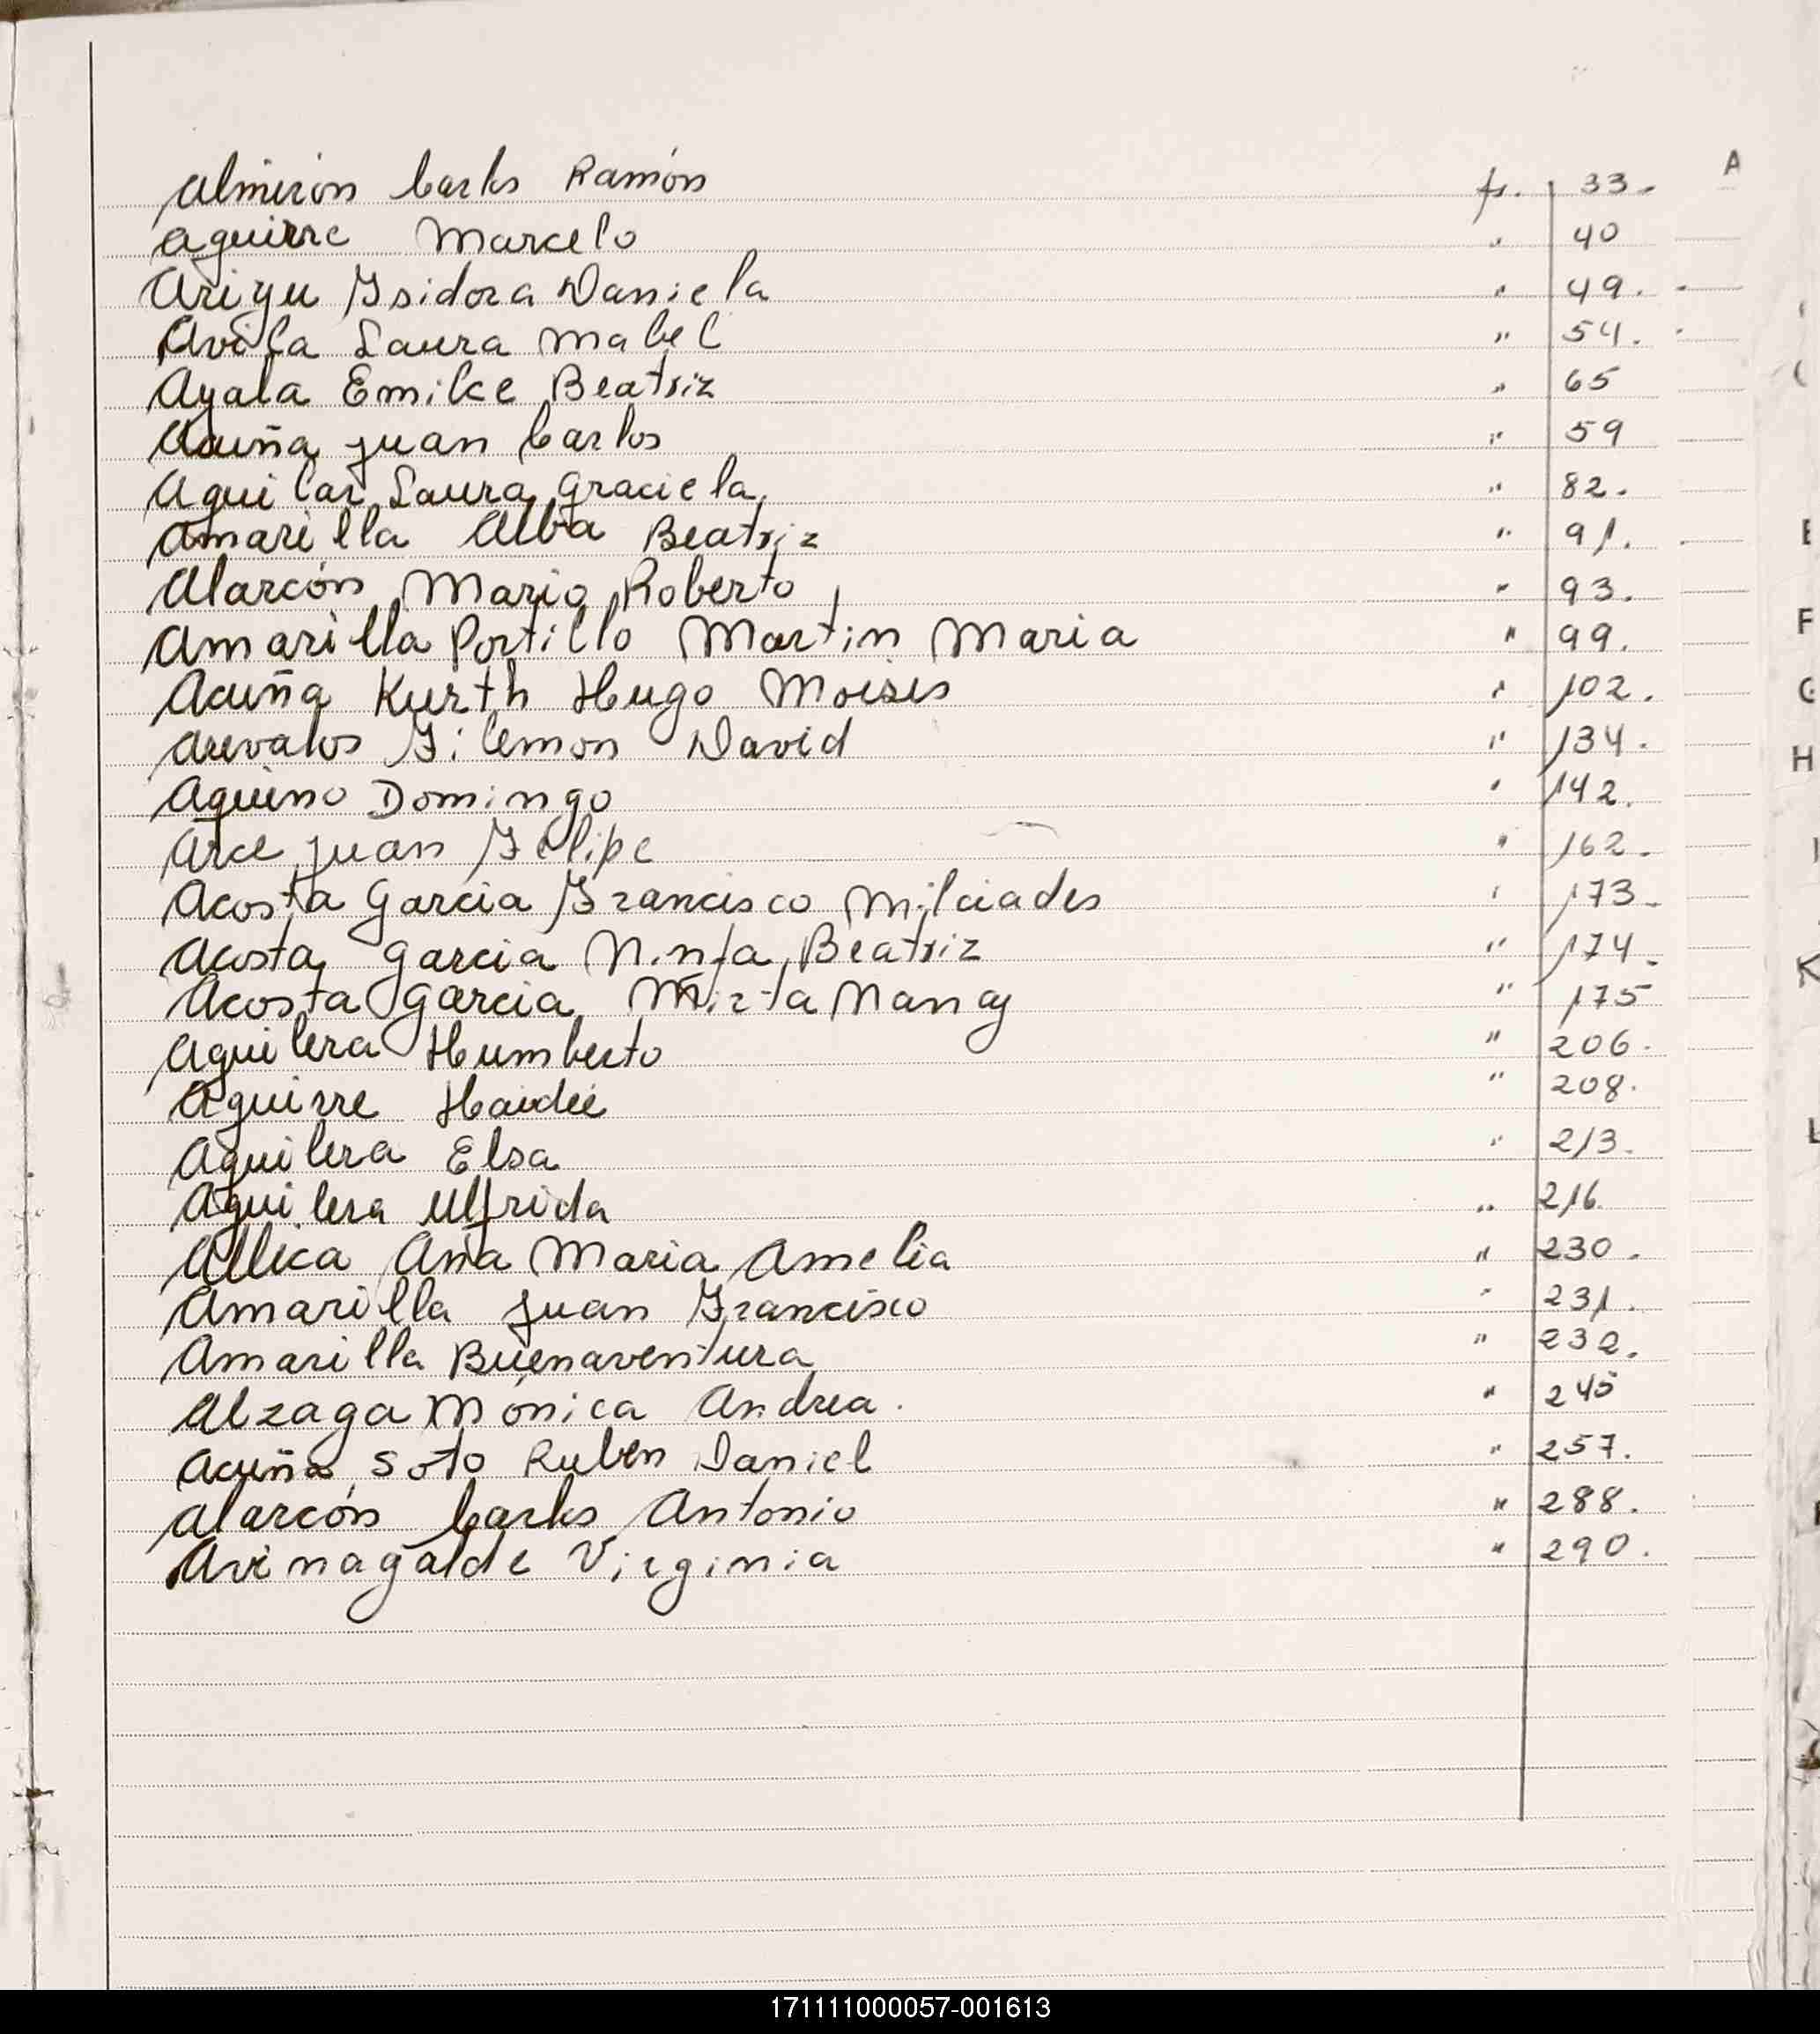 A
Almirón Carlos Ramón fs. 33.
Aguirre Marcelo " 40
Ariyu Isidora Daniela " 49.
Avila Laura Mabel " 54.
Ayala Emilce Beatriz " 65
Acuña Juan Carlos " 59
Aguilar Laura Graciela " 82.
Amarilla Alba Beatriz " 91.
Alarcón Mario Roberto " 93.
Amarilla Portillo Martin Maria " 99.
Acuña Kurth Hugo Moisés " 102.
Arevalos Filemon David " 134.
Aquino Domingo " 142.
Arce Juan Felipe " 162.
Acosta Garcia Francisco Milciades " 173.
Acosta Garcia Ninfa Beatriz " 174.
Acosta Garcia Mirta Nancy " 175
Aguilera Humberto " 206.
Aguirre Haidée " 208.
Aguilera Elsa " 213.
Aguilera Ulfrida " 216.
Allica Ana Maria Amelia " 230.
Amarilla Juan Francisco " 231.
Amarilla Buenaventura " 232.
Alzaga Mónica Andrea. " 245
Acuña Soto Ruben Daniel " 257.
Alarcón Carlos Antonio " 288.
Avinagalde Virginia " 290.
F
G
H
K
L
171111000057-001613